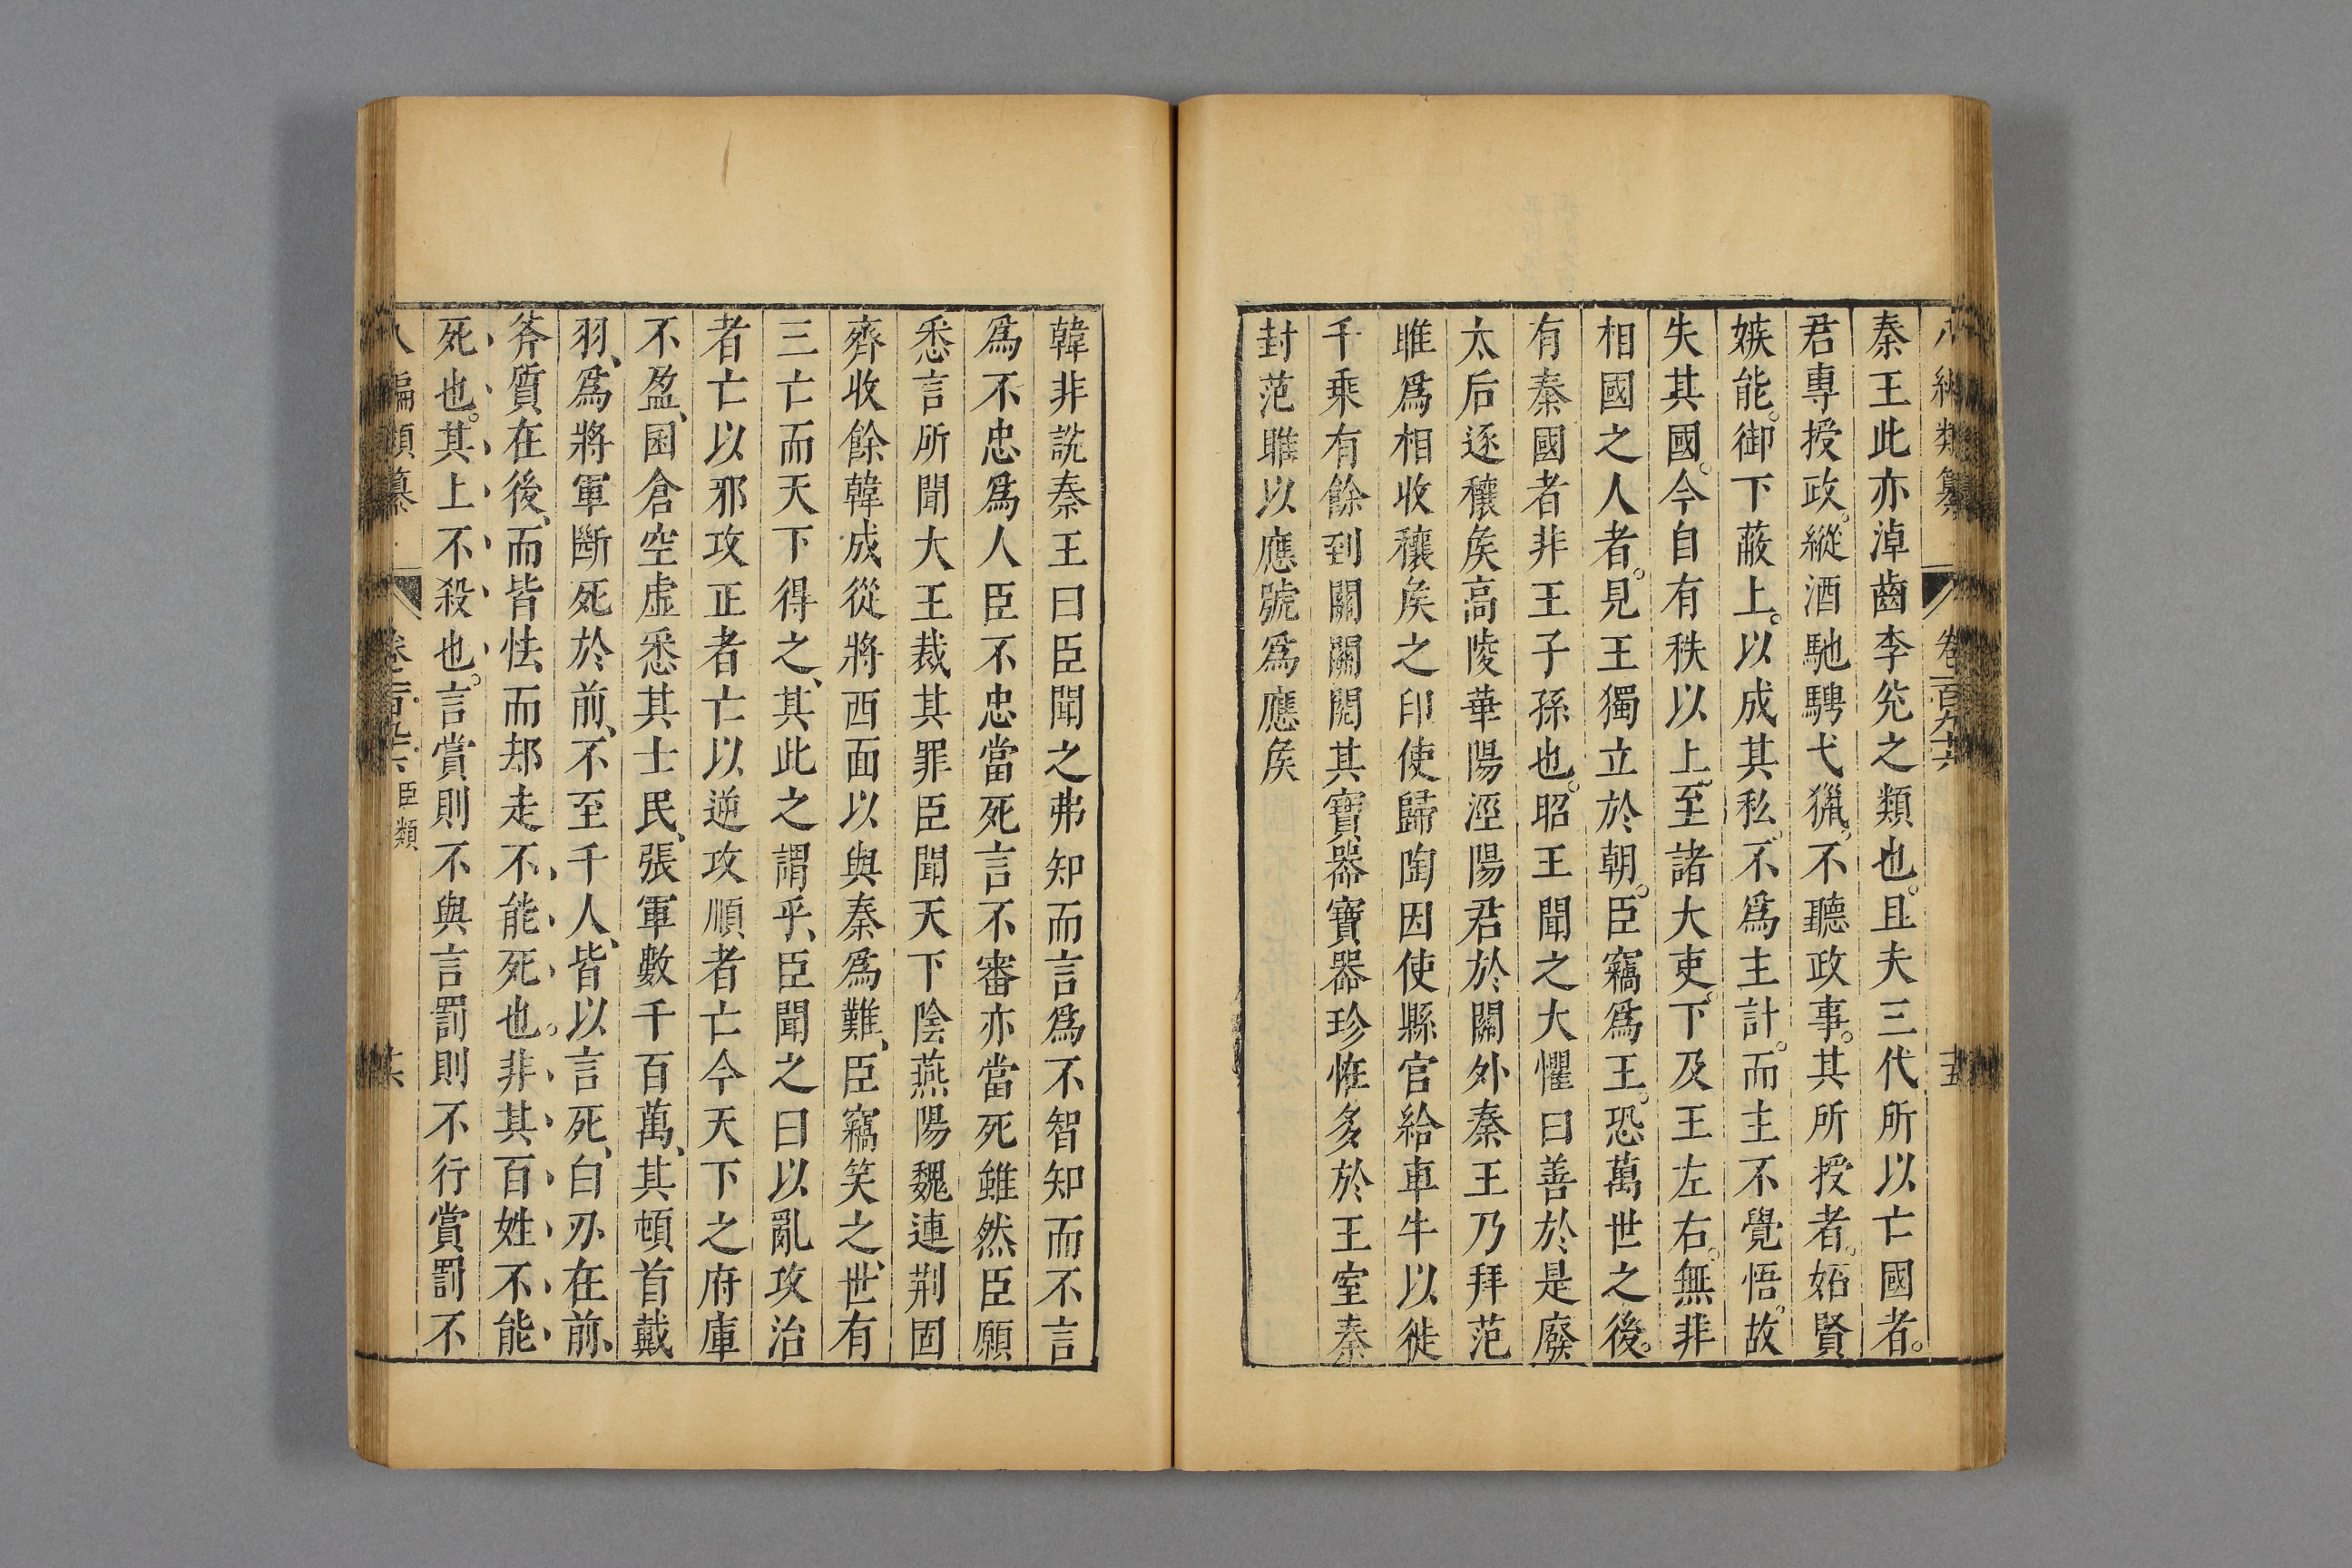 秦王此亦淖齒李兊之類也。且夫三代所以亡國者。
君專授政。縱酒馳騁弋獵。不聽政事。其所授者。妬賢
嫉能。御下蔽上。以成其私。不爲主計。而主不覺悟。故
失其國。今自有秩以上。至諸大吏。下及王左右。無非
相國之人者。見王獨立於朝。臣竊爲王。恐萬世之後。
有秦國者非王子孫也。昭王聞之大懼曰善於是廢
太后逐穰矦高陵華陽涇陽君於關外秦王乃拜范
雎爲相收穰矦之印使歸陶因使縣官給車牛以徙
千乘有餘到關關閱其寶器寶器珍恠多於王室秦
封范雎以應號爲應矦
韓非說秦王曰臣聞之弗知而言爲不智知而不言
爲不忠爲人臣不忠當死言不審亦當死雖然臣願
悉言所聞大王裁其罪臣聞天下陰燕陽魏連荆固
齊收餘韓成從將西面以與秦爲難、臣竊笑之、世有
三亡而天下得之、其此之謂乎、臣聞之曰以亂攻治
者亡以邪攻正者亡以逆攻順者亡今天下之府庫
不盈、囷倉空虛悉其士民、張軍數千百萬、其頓首戴
羽、爲將軍斷死於前、不至千人、皆以言死、白刃在前、
斧質在後、而皆怯而却走不能死也。非其百姓不能
死也。其上不殺也。言賞則不與言罰則不行賞罰不
編類纂 卷一百九十六 臣類 十六